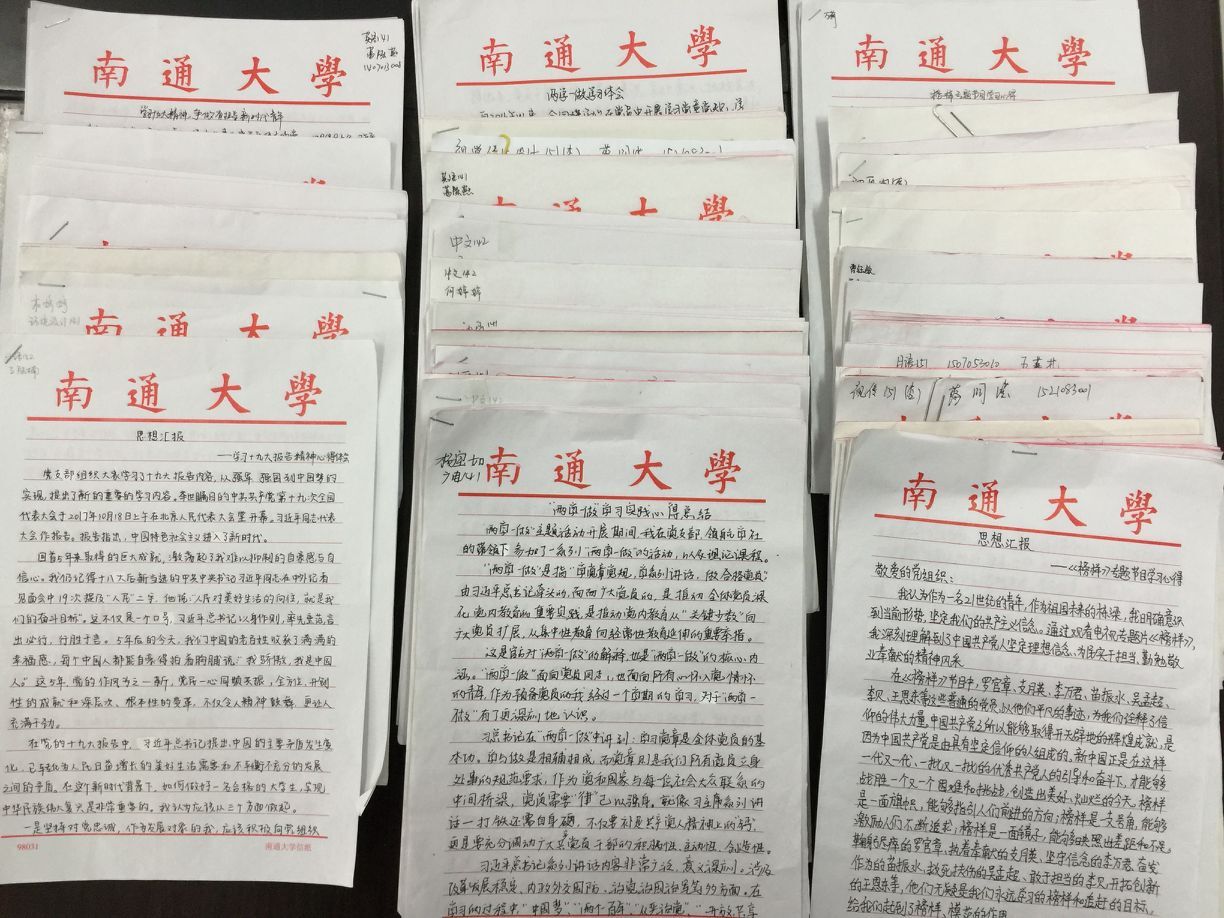 南通大學
英语141
1407013008
学习十九大精神,争做有担当新时代青年
南通大學
思想汇报
——学习十九大报告精神心得体会
党支部组织大家学习了十九大报告内容,从强军、强国到中国梦的
实现,提出了新的重要的学习内容。举世瞩目的中共共产党第十九次全国
代表大会于2017年10月18日上午在北京人民代表大会堂开幕。习近平同志代表
大会作报告。报告指出,中国特色社会主义进入了新时代。
回首5年来取得的巨大成就,激荡起了我难以抑制的自豪感与自
信心。我仍记得十八大后新当选的中共中央书记习近平同志在中外记者
见面会中19次提及“人民”二字,他说:“人民对美好生活的向往,就是我
们的奋斗目标”。这不仅是一个口号,习近平总书记以身作则,率先垂范,言
出必行,行胜于言。5年后的今天,我们中国的老百姓收获了满满的
幸福感,每个中国人都能自豪得拍着胸脯说:“我骄傲,我是中国
人。”这5年,党的作风为之一新,党民一心同频共振,全方位、开创
性的成就和深层次、根本性的变革,不仅令人精神鼓舞,更让人
充满干劲。
在党的十九大报告中,习近平总书记提出,中国的主要矛盾发生变
化,已转化为人民日益增长的美好生活需要和不平衡不充分的发展
之间的矛盾。在这个新时代背景下,如何做好一名合格的大学生,实现
中华民族伟大复兴是非常重要的。我认为应该从三个方面做起。
一是坚持对党忠诚,作为发展对象的我,应该积极向党组织
98031
南通大学信纸
南通大學
两学一做学习体会
南通大學
中文142
中文142
何婷婷
南通大學
“两学一做”学习实践心得总结
“两学一做”主题活动开展期间,我在党支部、领航学社
的带领下参加了一系列“两学一做”的活动,以及理论课程。
“两学一做”是指“学党章党规、学系列讲话,做合格党员”
由习近平总书记牵头的,面向广大党员的,是推动全体党员深
化党内教育的重要实践,是推动党内教育从“关键少数”向
广大党员扩展、从集中性教育向经常性教育延伸的重要举措。
这是官方对“两学一做”的解释,也是“两学一做”的核心内
涵。“两学一做”面向党员同志,也面向所有心怀入党情怀
的青年,作为预备党员的我经过一个学期的学习,对于“两学一
做”有了更深刻地认识。
习总书记在“两学一做”中讲到:学习党章是全体党员的基
本功。学与做是相辅相成,而党章则是我们所有党员立身
处事的规范要求,作为党和国家与每位社会大众联系的
中间桥梁,党员需要“律”己以强身。就像习主席系列讲
话一打铁还需自身硬,不仅要补足共产党人精神上的“钙”,
更是要充分调动广大共产党员干部的积极性、主动性、创造性。
习近平总书记系列讲话内容非常广泛,意义深刻,涉及
改革发展稳定、内政外交国防、治党治国治军等多方面。在
学习的过程中,“中国梦”、“两个百年”、“从严治党”、
南通大學
榜样专题节目学习心得
日语151 1507053010
视传151(渣) 1521083001
南通大學
思想汇报
——《榜样》专题节目学习心得
敬爱的党组织:
我认为作为一名21世纪的青年,作为祖国未来的栋梁,我应明确意识
到当前形势,坚定我们的共产主义信念。通过观看电视专题片《榜样》,
我深刻理解到了中国共产党人坚定理想信念、为民实干担当、勤勉敬
业奉献的精神风采。
在《榜样》节目中,罗官章、支月英、李万君、苗振水、吴孟超、
李贝、王恩东等这些普通的党员,以他们平凡的事迹,为我们诠释了信
仰的伟大力量,中国共产党之所以能够取得开天辟地的辉煌成就,是
因为中国共产党是由具有坚定信仰的人组成的。新中国正是在这样
一代又一代、一批又一批的优秀共产党人的引导和奋斗下,才能够
战胜一个又一个困难和挑战,创造出美好、灿烂的今天。榜样
是一面旗帜,能够指引人们前进的方向;榜样是一支号角,能够
激励人们不断追求;榜样是一面镜子,能够映照出差距和不足。
鞠躬尽瘁的罗官章、执着奉献的支月英、坚守信念的李万君、奋发
作为的苗振水、救死扶伤的吴孟超、敢于担当的李贝、开拓创新
的王恩东等,他们无疑是我们永远学习的榜样和追赶的目标。
给我们起到了榜样、模范的作用